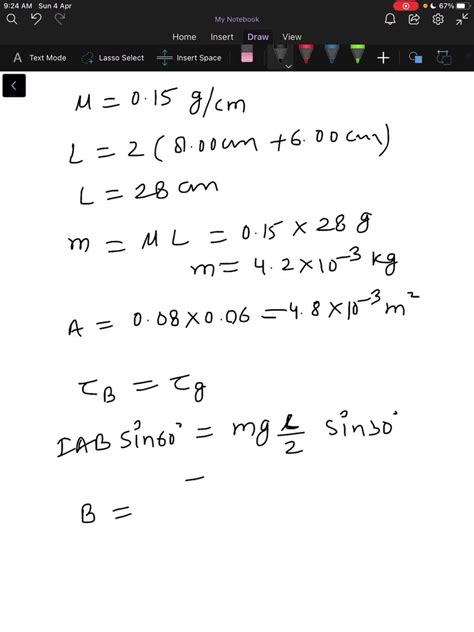 9:24 AM Sun 4 Apr 67%
My Notebook
Home Insert Draw View
A Text Mode Lasso Select Insert Space
M = 0.15 g/cm
L = 2 (8.00cm + 6.00cm)
L = 28 cm
m = M L = 0.15 × 28 g
m = 4.2×10⁻³ kg
A = 0.08×0.06 = 4.8×10⁻³ m²
τ_B = τ_g
IAB sin60° = mg L/2 sin30°
B =